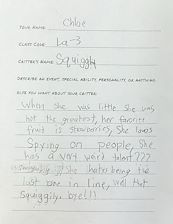 YOUR NAME: Chloe
CLASS CODE: La-3
CRITTER'S NAME: Squiggly
DESCRIBE AN EVENT, SPECIAL ABILITY, PERSONALITY, OR ANYTHING
ELSE YOU WANT ABOUT YOUR CRITTER:
When she was little she was
not the greatest, her favorite
fruit is strawberries, She loves
Spying on people, She
has a very weird talent???
she hates being the
last one in line, well that
Squiggily. bye!!!